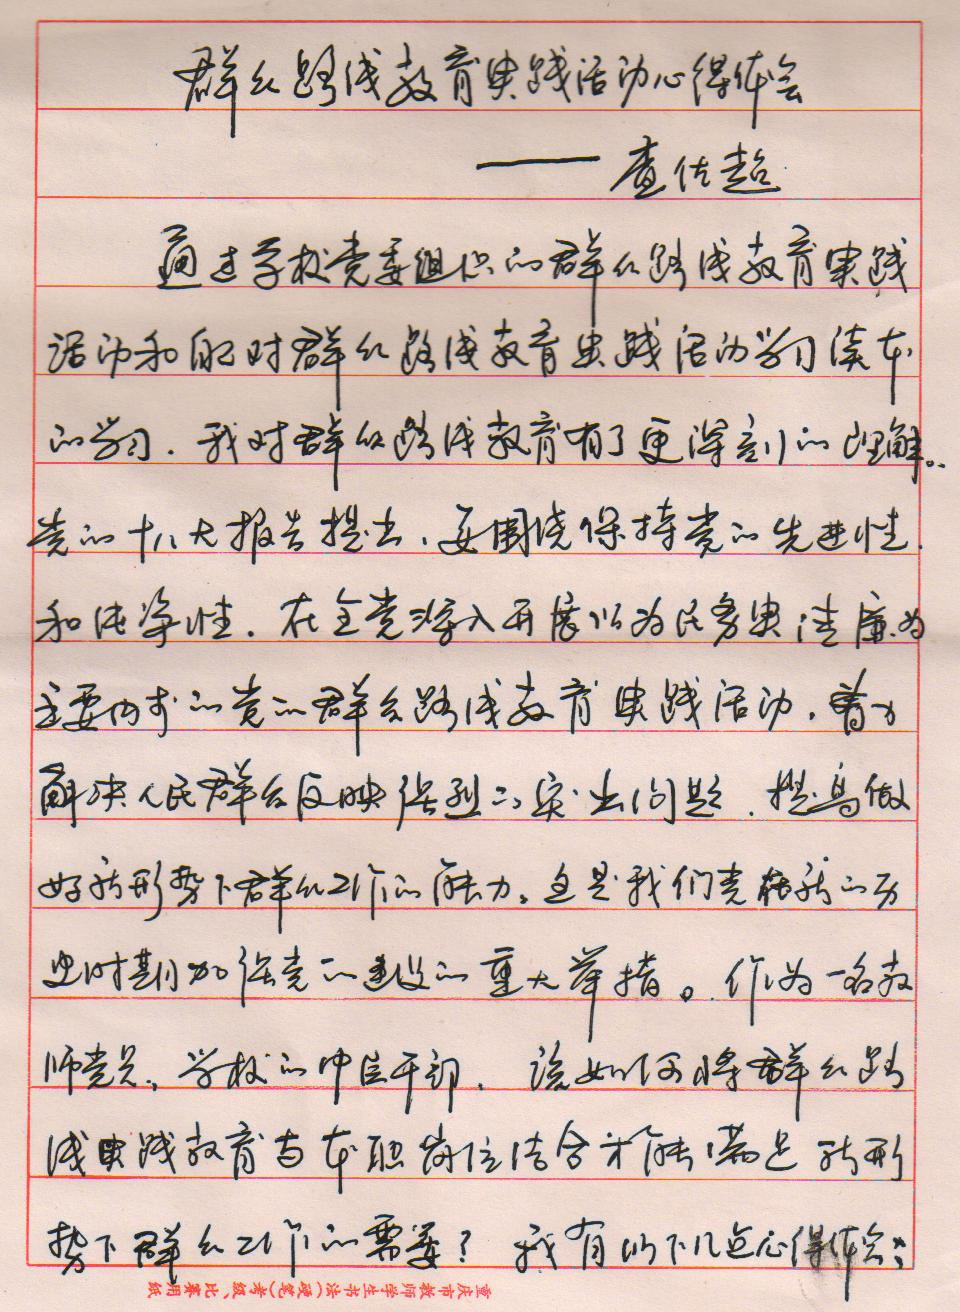 群众路线教育实践活动心得体会
——查佐超
通过学校党委组织的群众路线教育实践
活动和自己对群众路线教育实践活动学习读本
的学习，我对群众路线教育有了更深刻的理解。
党的十八大报告提出，要围绕保持党的先进性
和纯净性，在全党深入开展以为民务实清廉为
主要内容的党的群众路线教育实践活动，着力
解决人民群众反映强烈的突出问题，提高做
好新形势下群众工作的能力。这是我们党在新的历
史时期加强党的建设的重大举措。作为一名教
师党员，学校的中层干部，该如何将群众路
线实践教育与本职岗位结合才能满足新形
势下群众工作的需要？我有以下几点心得体会：
重庆市教师学生书法（硬笔）考级、比赛用纸